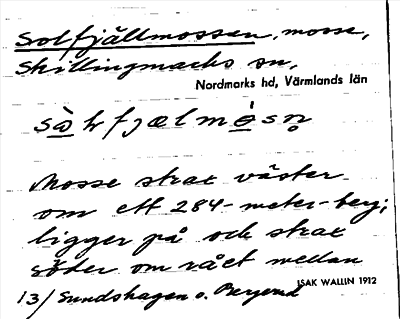 Solfjällmossen, mosse,
Skillingmarks sn,
Nordmarks hd, Värmlands län
Mosse strax väster
om ett 284-meter-berg;
ligger på och strax
söder om rået mellan
13/ Sundshagen o. Bergerud
ISAK WALLIN 1912